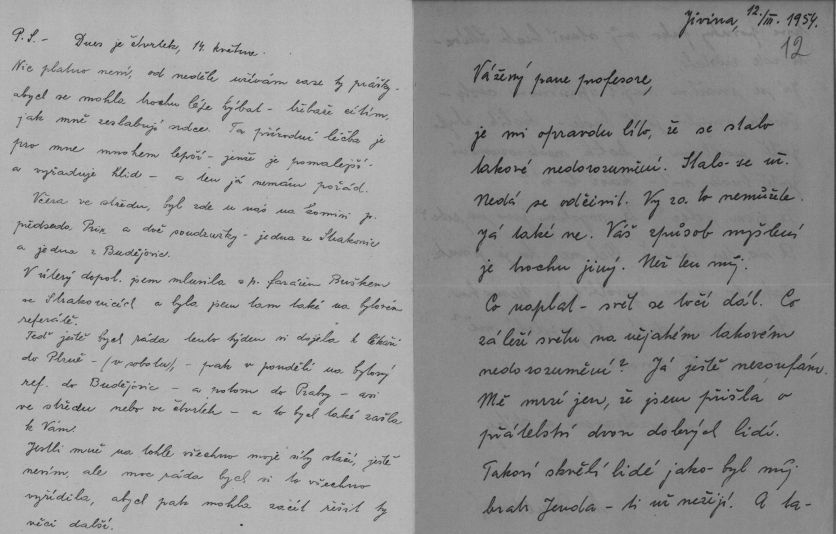 P.S. - Dnes je čtvrtek, 14. května.
Nic platno není, od neděle užívám zase ty prášky -
abych se mohla trochu lépe hýbat - třebaže cítím,
jak mně zeslabují srdce. Ta přírodní léčba je
pro mne mnohem lepší - jenže je pomalejší -
a vyžaduje klid - a ten já nemám pořád.
Včera ve středu, byl zde u nás na Zemini p.
předseda a dvě soudružky - jedna ze Strakonic
a jedna z Budějovic.
V úterý dopol. jsem mluvila s p. farářem Buškem
ve Strakonicích a byla jsem tam také na bytovém
referátě.
Teď ještě bych ráda tento týden si dojela k lékaři
do Plzně - (v sobotu) - pak v pondělí na bytový
ref. do Budějovic - a potom do Prahy - asi
ve středu nebo ve čtvrtek - a to bych také zašla
k Vám.
Jestli mně na tohle všechno moje síly stačí, ještě
nevím, ale moc ráda bych si to všechno
vyřídila, abych pak mohla začít řešit ty
věci další.
Jivina, 12./III. 1954.
12
Vážený pane profesore,
je mi opravdu líto, že se stalo
takové nedorozumění. Stalo-se už.
Nedá se odčinit. Vy za to nemůžete.
Já také ne. Váš způsob myšlení
je trochu jiný. Než ten můj.
Co naplat - svět se točí dál. Co
záleží světu na nějakém takovém
nedorozumění? Já ještě nezoufám.
Mě mrzí jen, že jsem přišla o
přátelství dvou dobrých lidí.
Takoví skvělí lidé jako-byl můj
brat Jenda - ti už nežijí. A ta-